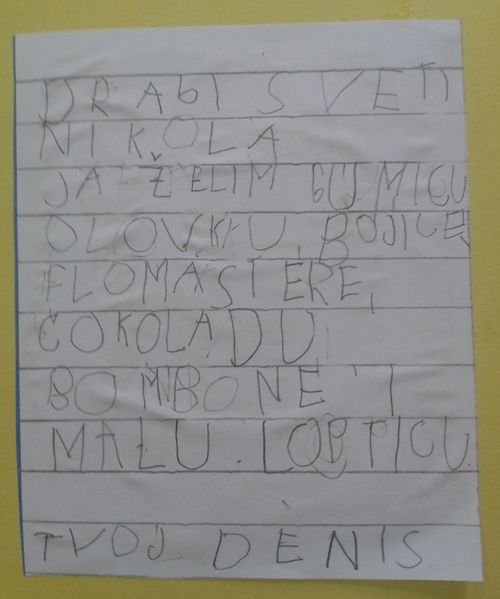 DRAGI SVETI
NIKOLA
JA ŽELIM GUMICU
OLOVKU, BOJICE,
FLOMASTERE,
ČOKOLADU,
BOMBONE I
MALU LOPTICU.
TVOJ DENIS